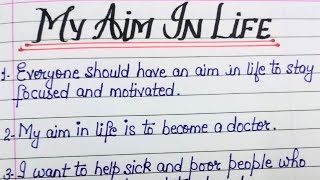 MY AIM IN LIFE
1- Everyone should have an aim in life to stay
focused and motivated.
2- My aim in life is to become a doctor.
3- I want to help sick and poor people who